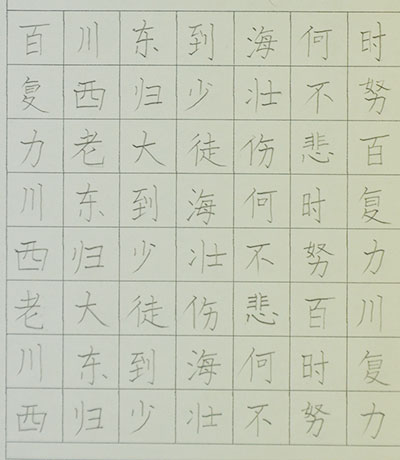 百川东到海何时
复西归少壮不努
力老大徒伤悲百
川东到海何时复
西归少壮不努力
老大徒伤悲百川
川东到海何时复
西归少壮不努力